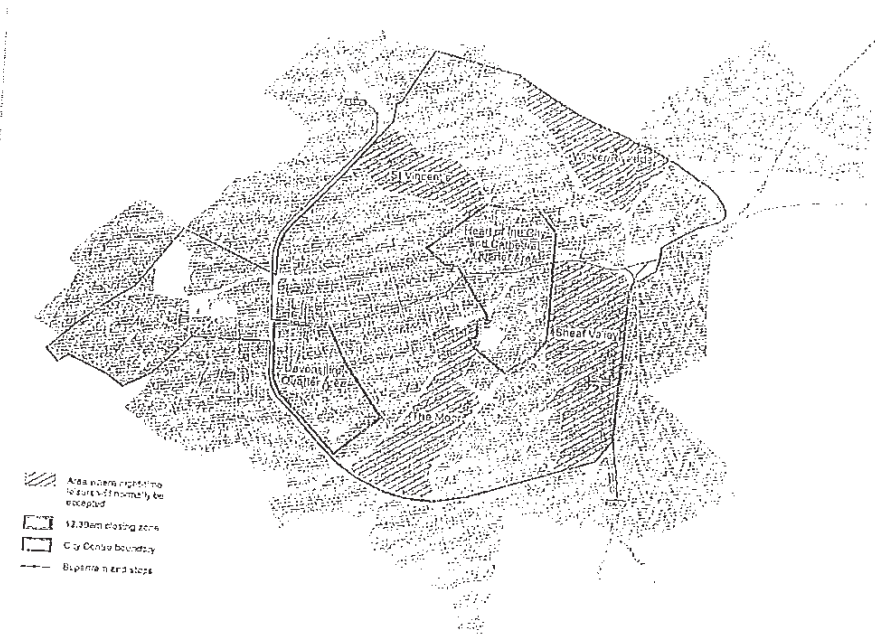 Wicker/Riverside
St Vincent's
Heart of the City
and Cathedral
Quarter Area
Sheaf Valley
Devonshire
Quarter Area
The Moor
Area where night-time
leisure will normally be
accepted
12.30am closing zone
City Centre boundary
Supertram and stops